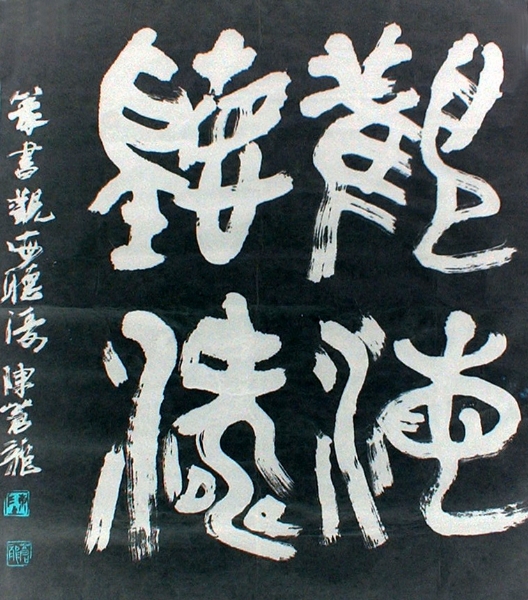 觀海
聽濤
篆書觀海聽濤 陳龍